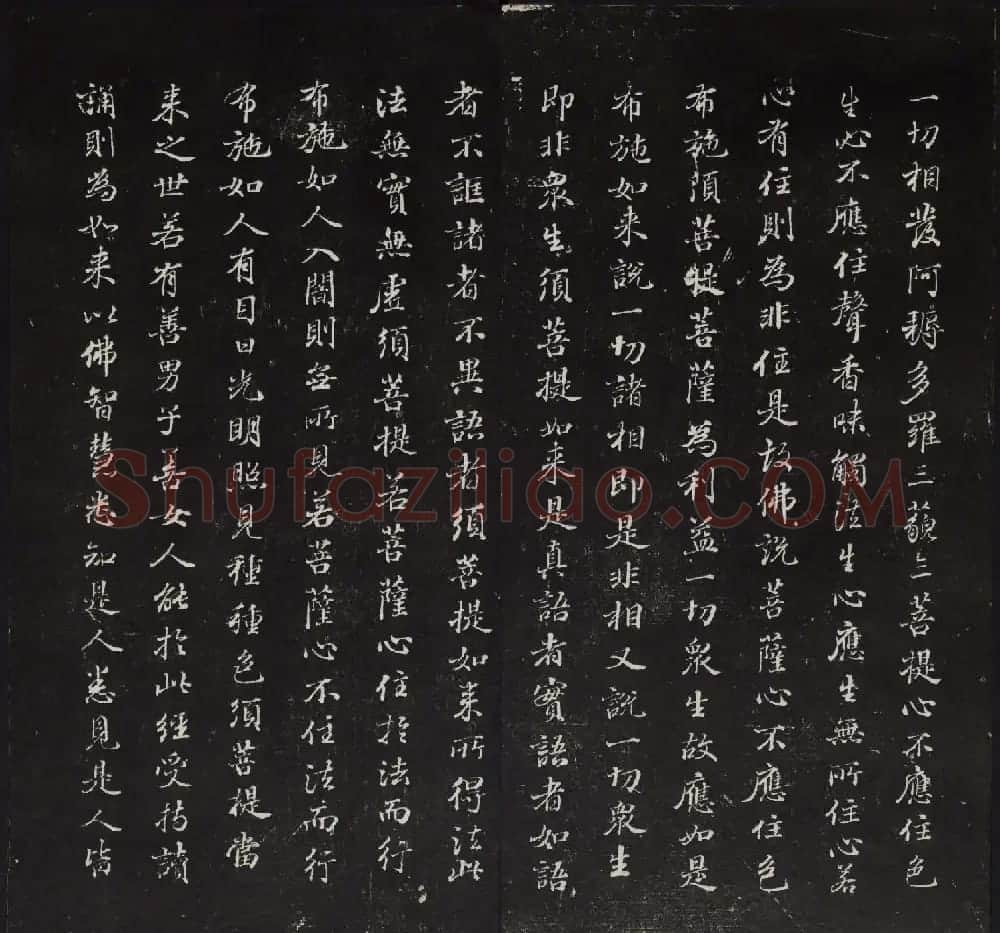 一切相發阿耨多羅三藐三菩提心不應住色
生心不應住聲香味觸法生心應生無所住心若
心有住則為非住是故佛說菩薩心不應住色
布施須菩提菩薩為利益一切衆生故應如是
布施如来說一切諸相即是非相又說一切衆生
即非衆生須菩提如来是真語者實語者如語
者不誑諸者不異語者須菩提如来所得法此
法無實無虛須菩提若菩薩心住於法而行
布施如人入闇則無所見若菩薩心不住法而行
布施如人有目日光明照見種種色須菩提當
来之世若有善男子善女人能於此經受持讀
誦則為如来以佛智慧悉知是人悉見是人皆
Shufaziliao.COM